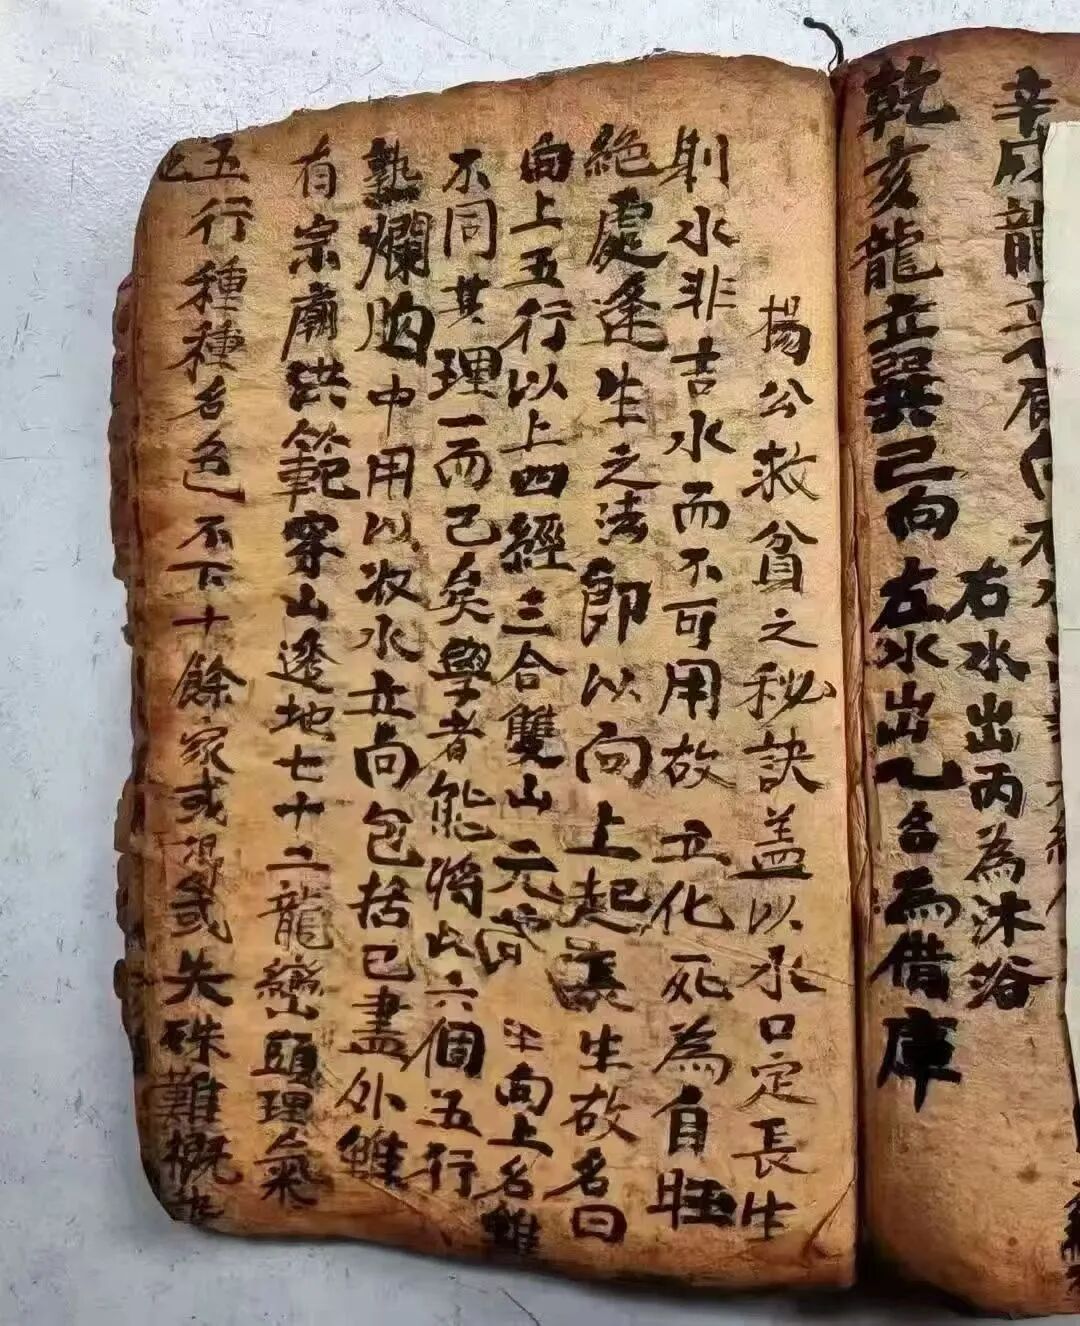 辛戌龍立
右水出丙為沐浴
乾亥龍立巽己向
左水出乙
為借庫
楊公救貧之秘訣盖以水口定長生
則水非吉水而不可用故立化死為自旺
絕處逢生之法即以向上起長生故名曰
向上五行以上四經三合雙山元空生向上名雖
不同其理一而己矣學者能將此六個五行
熟爛胸中用以收水立向包括已盡外雖
有宗廟洪範穿山透地七十二龍巒頭理氣
五行種種名色不下十餘家或得或失殊難概